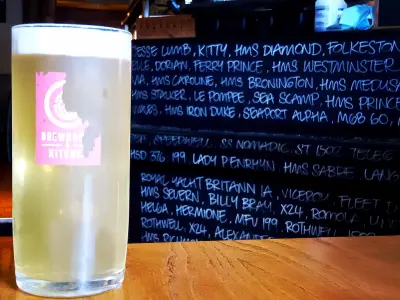 BREWHOUSE
& KITCHEN
JESSE LUMB, KITTY, HMS DIAMOND, FOLKESTON
DORIAN, FERRY PRINCE, HMS WESTMINSTER
HMS CAROLINE, HMS BRONINGTON, HMS MEDUSA
HMS STALKER, LE POMPEE, SEA SCAMP, HMS PRINCE
HMS IRON DUKE, SEAPORT ALPHA, MGB 60,
SPEEDWELL, SS NOMADIC, ST 1502,
HSD 376, 199, LADY PENRHYN, HMS SABRE,
ROYAL YACHT BRITANNIA, VICEROY, FLEET
HMS SEVERN, BILLY BRAY, X24, ROMOLA,
HELGA, HERMIONE, MFV 199, ROTHWELL,
ROTHWELL, X24,
HMS